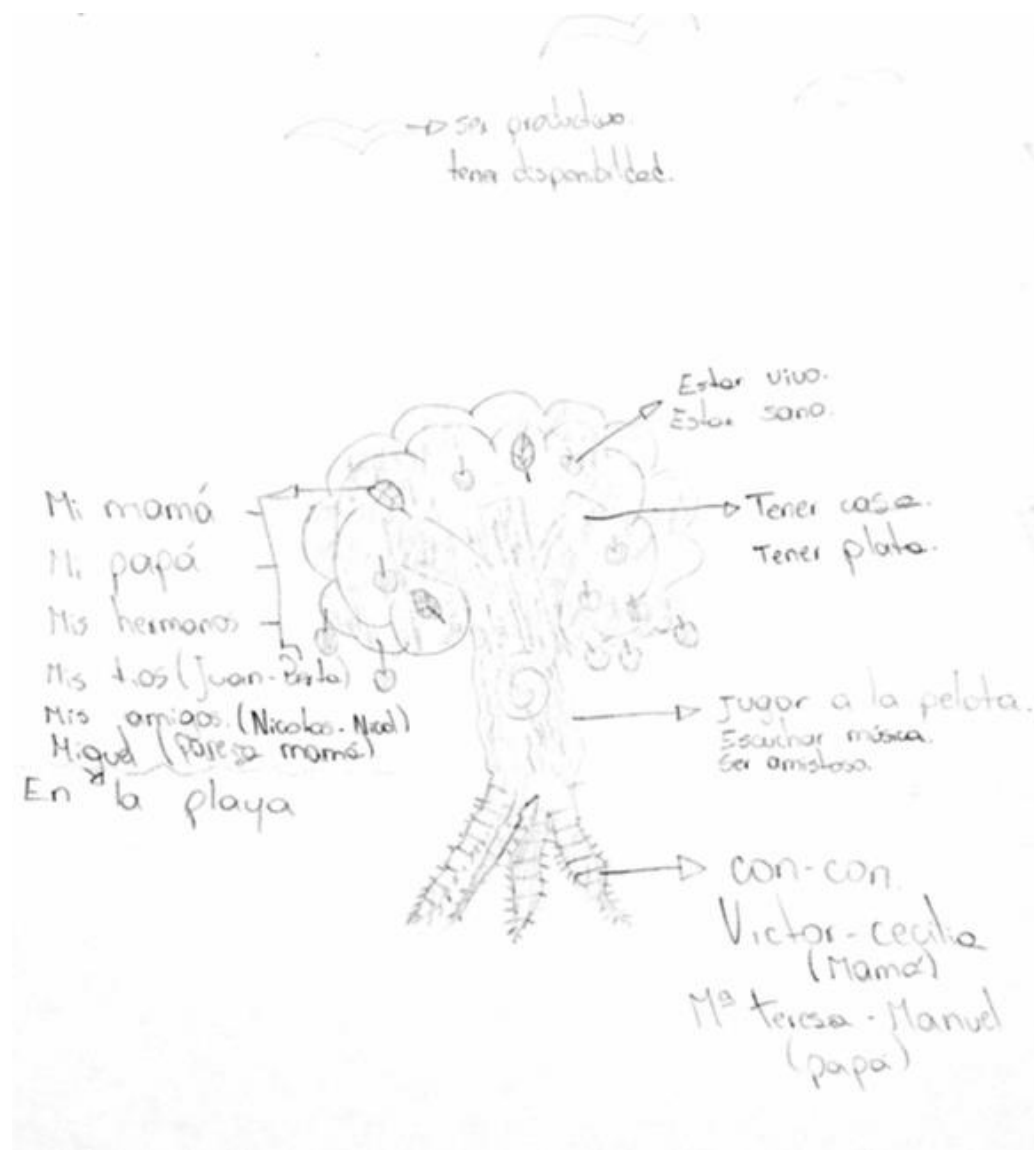 ser productivo.
tener disponibilidad.
Estar vivo.
Estar sano.
Mi mamá
Mi papá
Mis hermanos
Mis tios (Juan-Berta)
Mis amigos. (Nicolas-Nicol)
Miguel (Pareja mamá)
En la playa
Tener casa.
Tener plata.
Jugar a la pelota.
Escuchar música.
Ser amistoso.
con-con.
Victor-cecilia
(Mamá)
Mª teresa - Manuel
(papá)